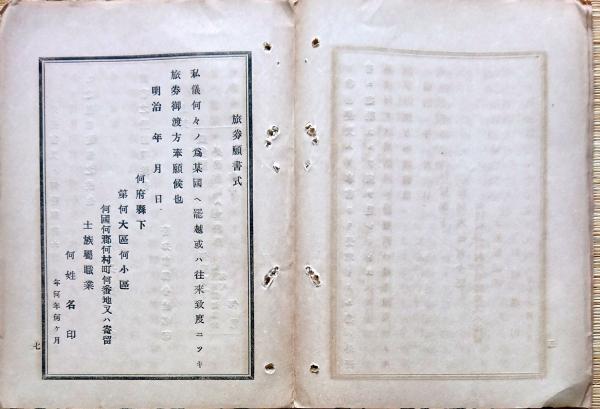 旅券願書式
私儀何々ノ爲某國ヘ罷越或ハ往来致度ニツキ
旅券御渡方奉願候也
明治 年 月 日
何府縣下
第何大區何小區
何國何郡何村町何番地又ハ寄留
士族屬職業
何姓名印
年何年何ヶ月
七